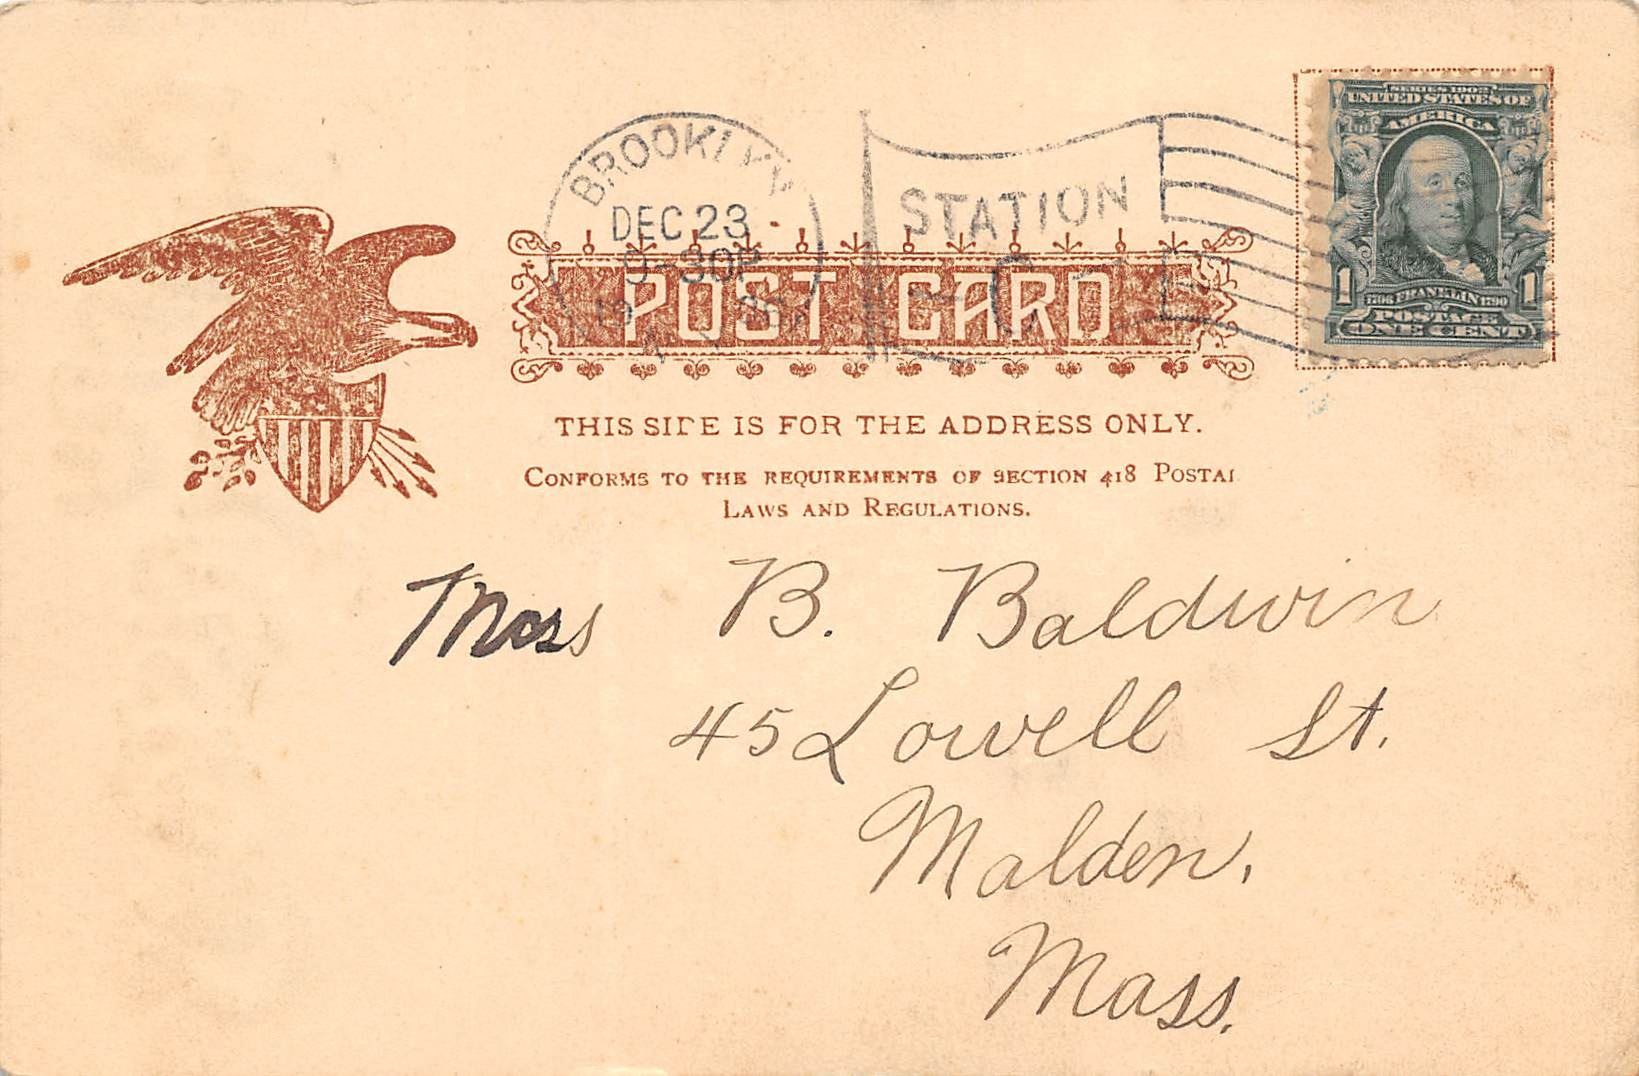 SERIES 1902
UNITED STATES OF
AMERICA
BROOKLYN
DEC 23
9-30P
STATION
C
POST CARD
1 1706 FRANKLIN 1790 1
POSTAGE
ONE CENT
THIS SIDE IS FOR THE ADDRESS ONLY.
CONFORMS TO THE REQUIREMENTS OF SECTION 418 POSTAL
LAWS AND REGULATIONS.
B. Baldwin
45 Lowell St.
Malden,
Mass.